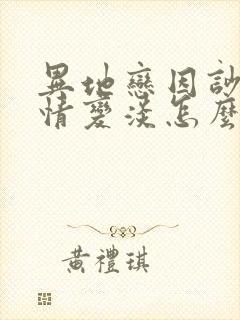 異地戀因
情變淡怎麼
黃禮琪